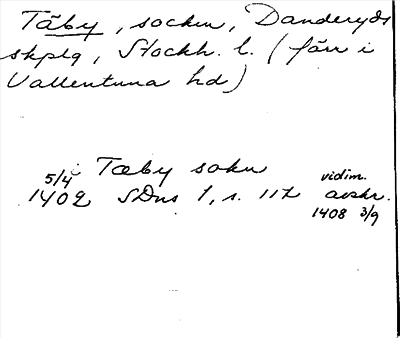 Täby, socken, Danderyds
skplg, Stockh. l. (förr i
Vallentuna hd)
i Tæby sokn
5/4 1402 SDns 1, s. 112 vidim. avskr.
1408 3/9